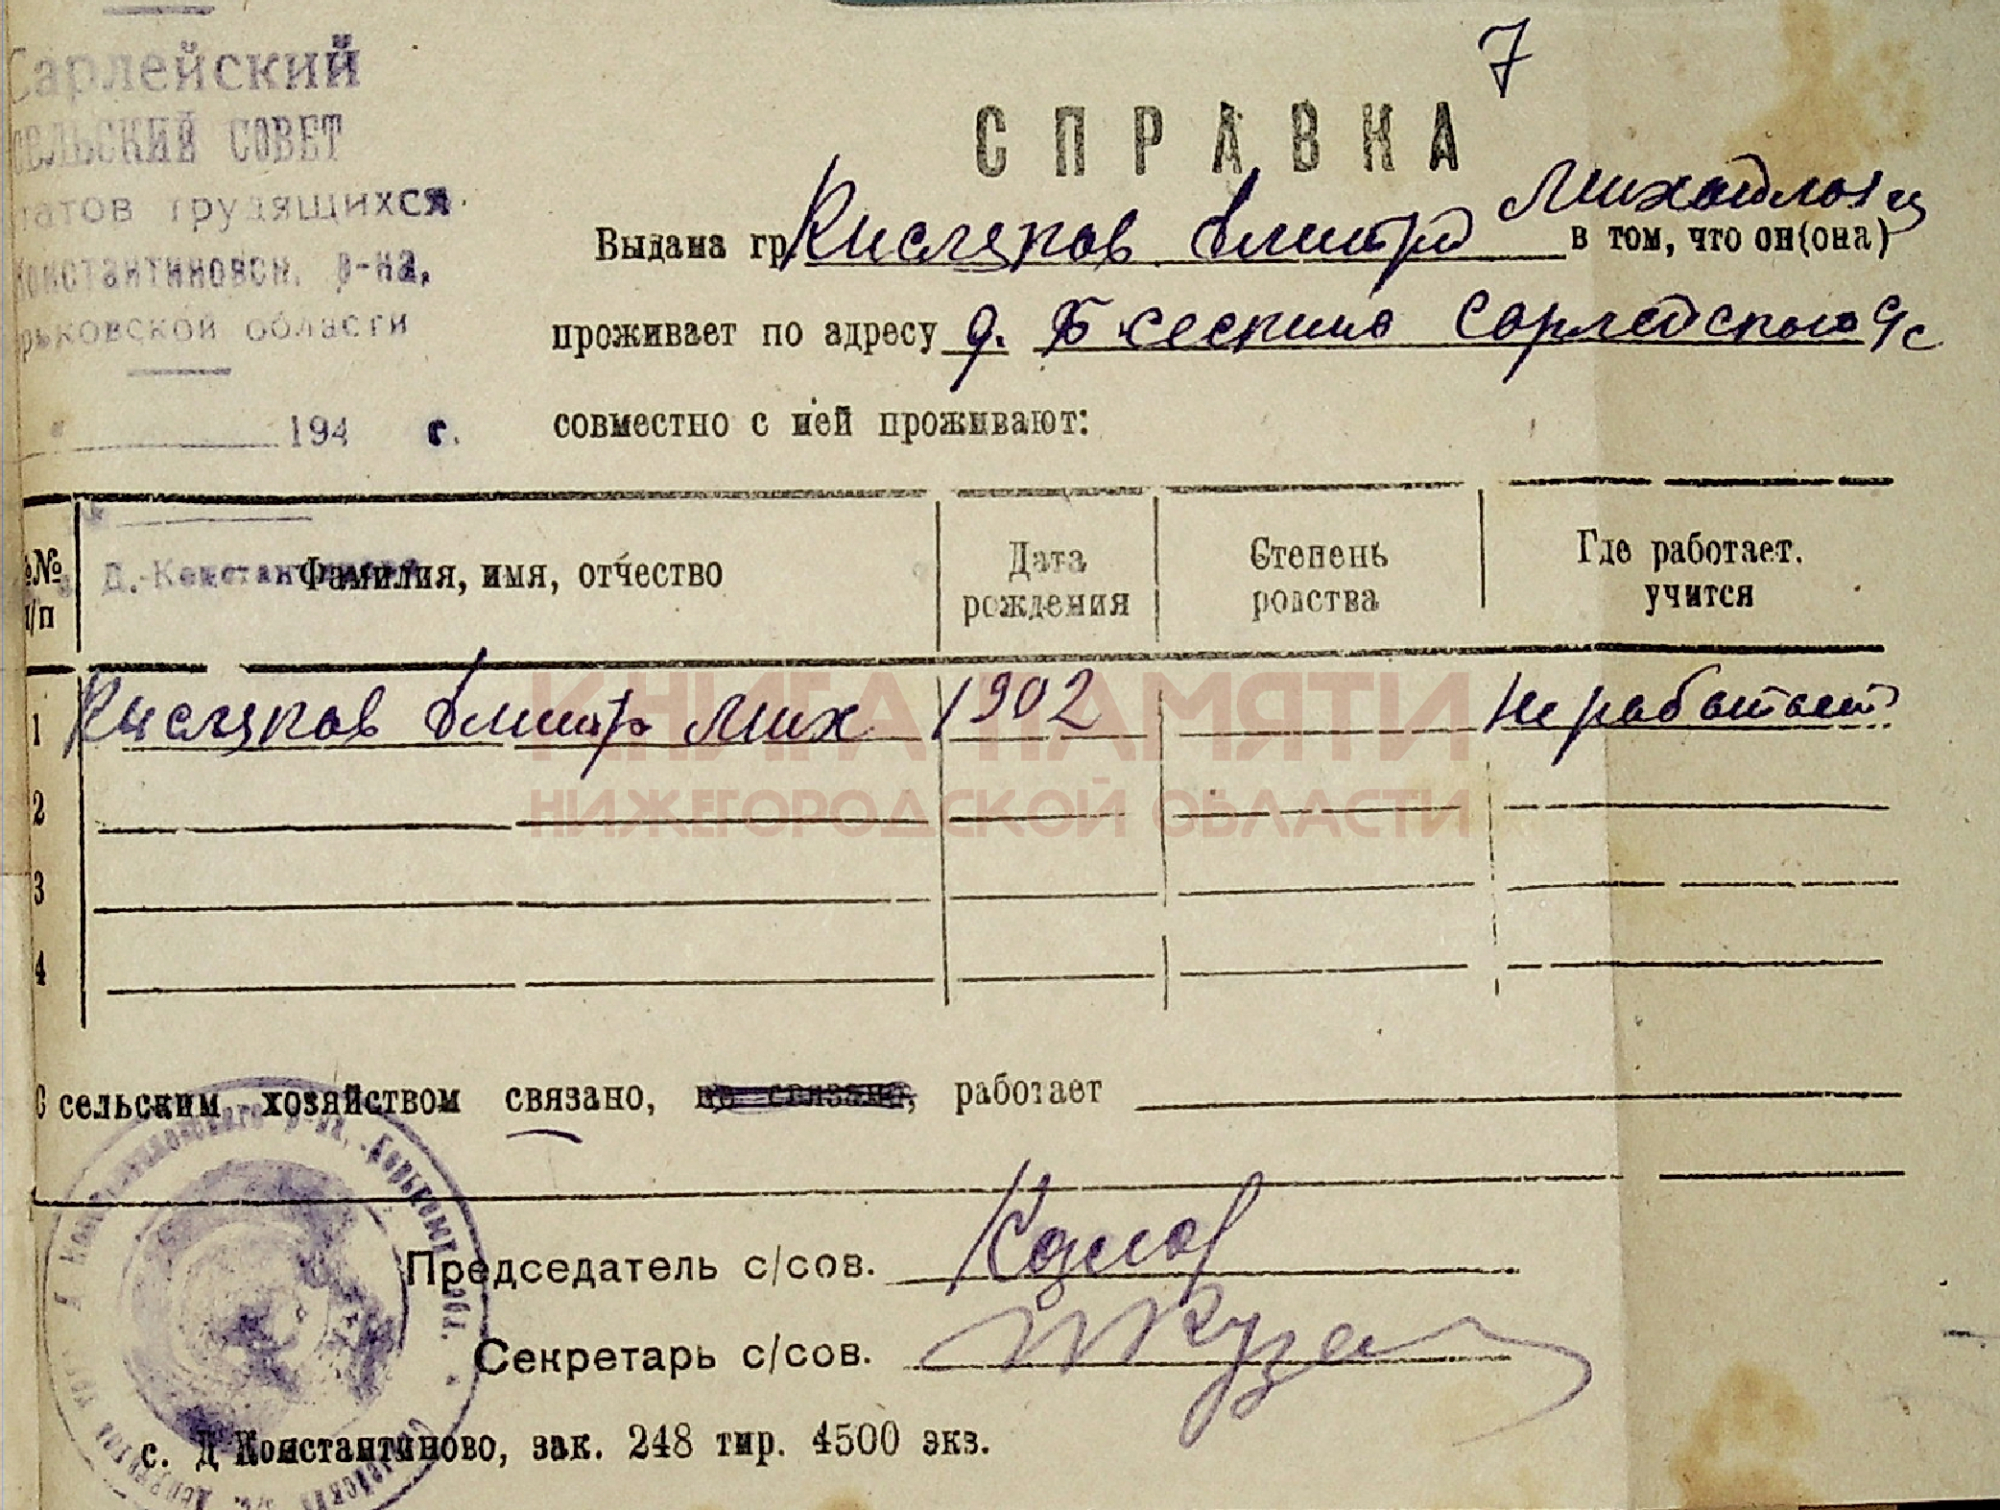 7
Сарлейский
СЕЛЬСКИЙ СОВЕТ
трудящихся
Константиновск. р-на,
рьковской области
194 г.
СПРАВКА
Выдана гр. Кисляков Дмитрий Михайлович в том, что он(она)
проживает по адресу д. Б Сескино Сарлейского с/с
совместно с ней проживают:
№№ п/п
Д.-Константиново
Фамилия, имя, отчество
Дата рождения
Степень родства
Где работает. учится
1 Кисляков Дмитр Мих 1902 Не работает
2
3
4
С сельским хозяйством связано, не связано, работает
Председатель с/сов.
Секретарь с/сов.
с. Д Константиново, зак. 248 тир. 4500 экз.
КНИГА ПАМЯТИ
НИЖЕГОРОДСКОЙ ОБЛАСТИ